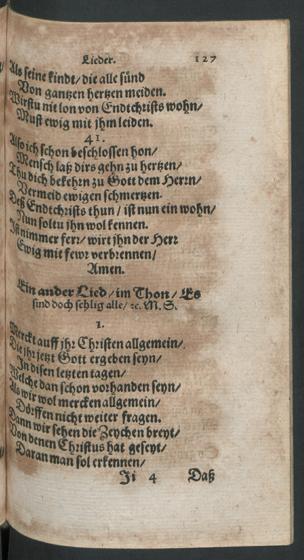 Lieder. 127
Als seine kindt/ die alle sünd
Von gantzen hertzen meiden.
Wirstu nit lon von Endtchrists wohn/
Must ewig mit jhm leiden.
41.
Also ich schon beschlossen hon/
Mensch laß dirs gehn zu hertzen/
Thu dich bekehrn zu Gott dem Herrn/
Vermeid ewigen schmertzen.
Deß Endtchrists thun/ ist nun ein wohn/
Nun soltu jhn wol kennen.
Ist nimmer ferr/ wirt jhn der Herr
Ewig mit fewr verbrennen/
Amen.
Ein ander Lied/ im Thon/ Es
sind doch sehlig alle/ ꝛc. M. S.
1.
Merckt auff jhr Christen allgemein/
Die jhr jetzt Gott ergeben seyn/
In disen letzten tagen/
Welche dan schon vorhanden seyn/
Als wir wol mercken allgemein/
Dörffen nicht weiter fragen.
Dann wir sehen die Zeychen breyt/
Von denen Christus hat geseyt/
Daran man sol erkennen/
Ii 4 Daß